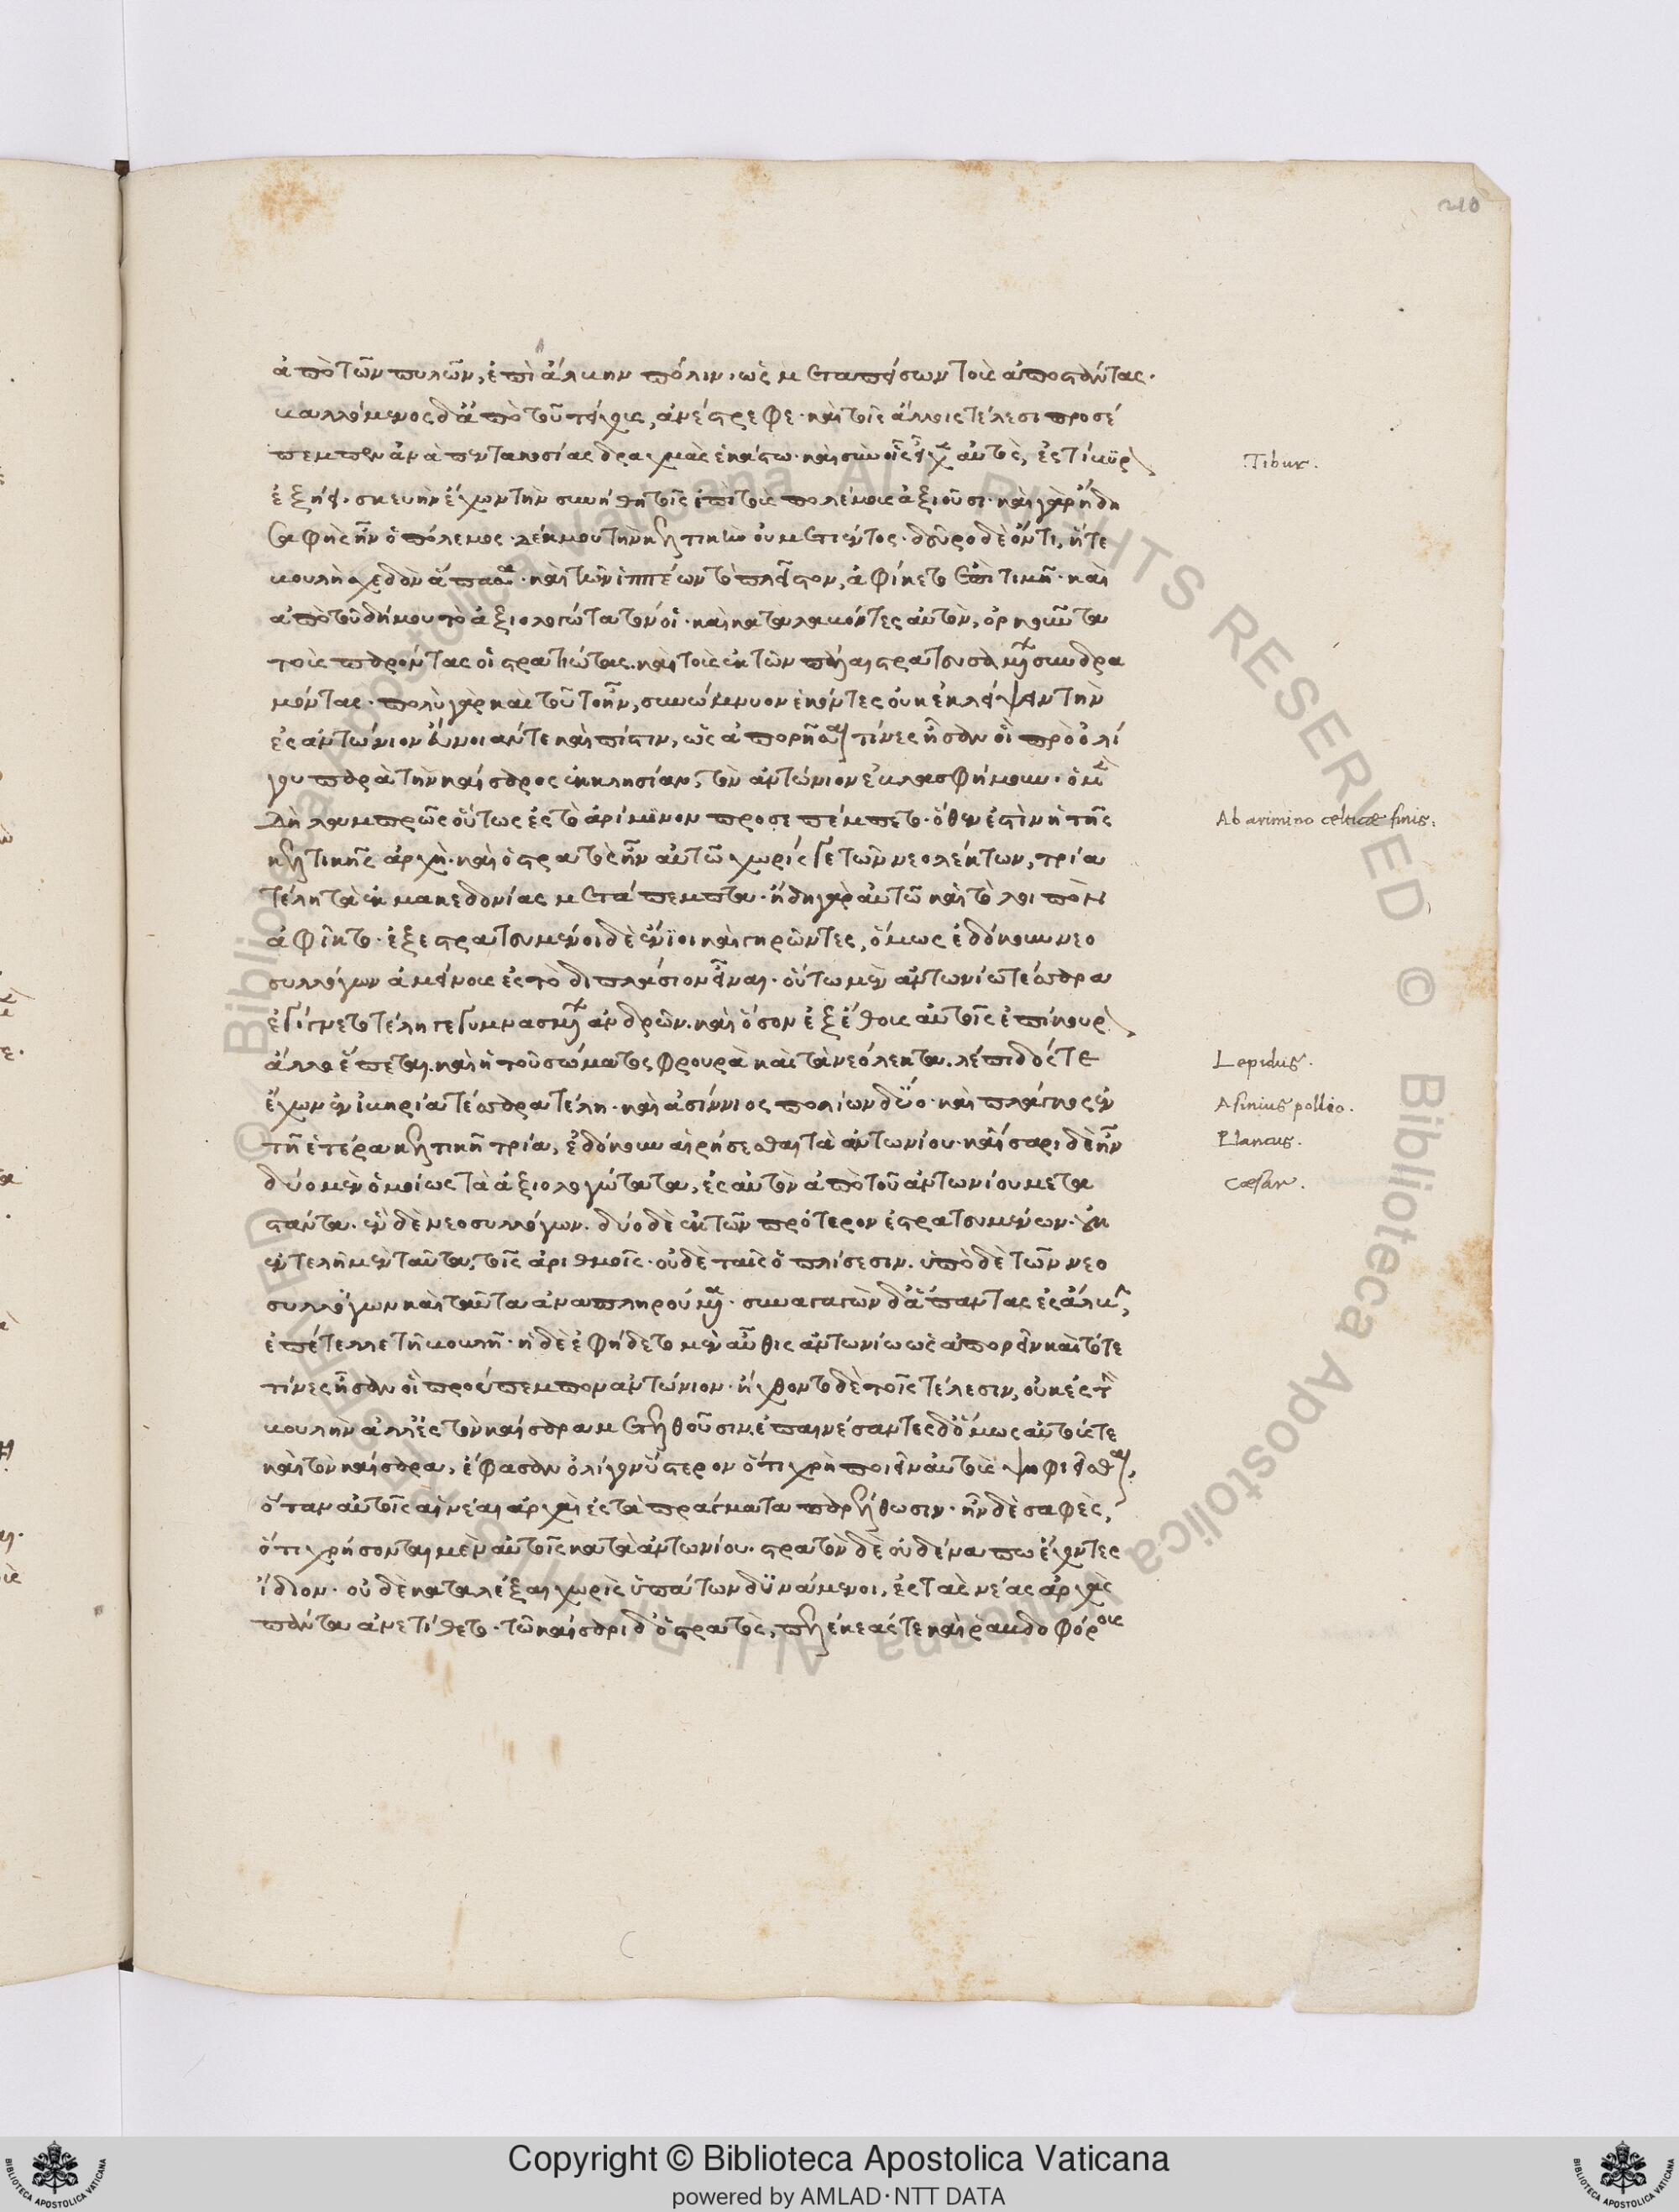 ἀπὸ τῶν πυλῶν, ἐπὶ ἄλβην πόλιν· ὡς μεταπείσων τοὺς ἀποστάντας·
βαλλόμενος δ᾽ ἀπὸ τοῦ τείχους, ἀνέστρεφε· καὶ τοῖς ἄλλοις τέλεσι προσέ
πεμπεν ἀνὰ πεντακοσίας δραχμὰς ἑκάστω· καὶ σὺν οἷς εἶχεν αὐτὸς, ἐς τίβυρον
ἐξήει· σκευὴν ἔχων τὴν συνήθη τοῖς ἐπὶ τοὺς πολέμους ἀξιοῦσι· καὶ γὰρ ἤδη
σαφὴς ἦν ὁ πόλεμος· δέκμου τὴν κελτικὴν οὐ μεθιέντος· δεῦρο δὲ ὄντι, ἥτε
βουλὴ σχεδὸν ἅπασα· καὶ τῶν ἱππέων τὸ πλεῖστον, ἀφίκετο ἐπὶ τιμῆ· καὶ
ἀπὸ τοῦ δήμου τὸ ἀξιολογώτατον· οἳ καὶ καταλαβόντες αὐτὸν, ὁρκοῦντα
τοὺς παρόντας οἱ στρατιώτας. καὶ τοὺς ἐκ τῶν πάλαι στρατευσαμένων συνδρα
μόντας· πολὺ γὰρ καὶ τοῦτο ἦν, συνώμνυον ἑκόντες οὐκ ἐκλείψειν τὴν
ἐς ἀντώνιον εὔνοιάν τε καὶ πίστιν, ὡς ἀπορῆσαι τίνες ἦσαν οἳ πρὸ ὀλί
γου παρὰ τὴν καίσαρος ἐκκλησίαν, τὸν ἀντώνιον ἐβλασφήμουν· ὁ μὲν
δὴ λαμπρῶς οὕτως ἐς τὸ ἀρίμινον προσεπέμπετο· ὅθεν ἐστὶν ἡ τῆς
κελτικῆς ἀρχὴ· καὶ ὁ στρατὸς ἦν αὐτῶ χωρίς γε τῶν νεολέκτων, τρία
τέλη τὰ ἐκ μακεδονίας μετάπεμπτα· ἤδη γὰρ αὐτῶ καὶ τὸ λοιπὸν
ἀφῖκτο· ἐξεστρατευμένοι δὲ ἕνϊοι καὶ γηρῶντες, ὅμως ἐδόκουν νεο
συλλόγων ἀμείνους ἐς τὸ διπλάσιον εἶναι· οὕτω μὲν ἀντωνίω τέσσαρα
ἐγίγνετο τέλη γεγυμνασμένων ἀνδρῶν. καὶ ὅσον ἐξ ἔθους αὐτοῖς ἐπίκουρον
ἄλλο ἕπεται. καὶ ἡ τοῦ σώματος φρουρὰ καὶ τὰ νεόλεκτα. λέπιδός τε
ἔχων ἐν ἰβηρία τέσσαρα τέλη· καὶ ἀσίννιος πολίων δύο· καὶ πλάγκος ἐν
τῆ ἑτέρα κελτικῆ τρία, ἐδόκουν αἱρήσεσθαι τὰ ἀντωνίου· καίσαρι δὲ ἦν
δύο μὲν ὁμοίως τὰ ἀξιολογώτατα, ἐς αὐτὸν ἀπὸ τοῦ ἀντωνίου μετα
στάντα· ἓν δὲ νεοσυλλόγων· δύο δὲ ἐκ τῶν πρότερον ἐστρατευμένων· οὐκ
ἐντελῆ μὲν ταῦτα, τοῖς ἀριθμοῖς· οὐδὲ ταῖς ὁπλίσεσιν. ὑπὸ δὲ τῶν νεο
συλλόγων καὶ ταῦτα ἀναπληρούμενα· συναγαγὼν δ᾽ ἅπαντας ἐς ἄλβην,
ἐπέτελλε τῆ βουλῆ· ἡ δὲ ἐφήδετο μὲν αὖθις ἀντωνίω ὡς ἀπορεῖν καὶ τότε
τίνες ἦσαν οἳ προύπεμπον ἀντώνιον· ἤχθοντο δὲ τοῖς τέλεσιν, οὐκ ἐς τὴν
βουλὴν ἀλλ᾽ ἐς τὸν καίσαρα μετελθοῦσιν. ἐπαινέσαντες δ᾽ ὅμως αὐτούς τε
καὶ τὸν καίσαρα, ἔφασαν ὀλίγον ὕστερον ὅτι χρὴ ποιεῖν αὐτοὺς ψηφιεῖσθαι,
ὅταν αὐτοῖς αἱ νέαι ἀρχαὶ ἐς τὰ πράγματα παρέλθωσιν· ἦν δὲ σαφὲς,
ὅτι χρήσονται μὲν αὐτοῖς κατὰ ἀντωνίου. στρατὸν δὲ οὐδένα πω ἔχοντες
ἴδιον· οὐδὲ καταλέξαι χωρὶς ὑπάτων δυνάμενοι, ἐς τὰς νέας ἀρχὰς
πάντα ἀνετίθετο· τῶ καίσαρι δ᾽ ὁ στρατὸς, πελέκεάς τε καὶ ῥαβδοφόρους
210
Tibur.
Ab arimino celticae finis:
Lepidus.
Asinius pollio.
Plancus.
Caesar.
Copyright © Biblioteca Apostolica Vaticana
powered by AMLAD·NTT DATA